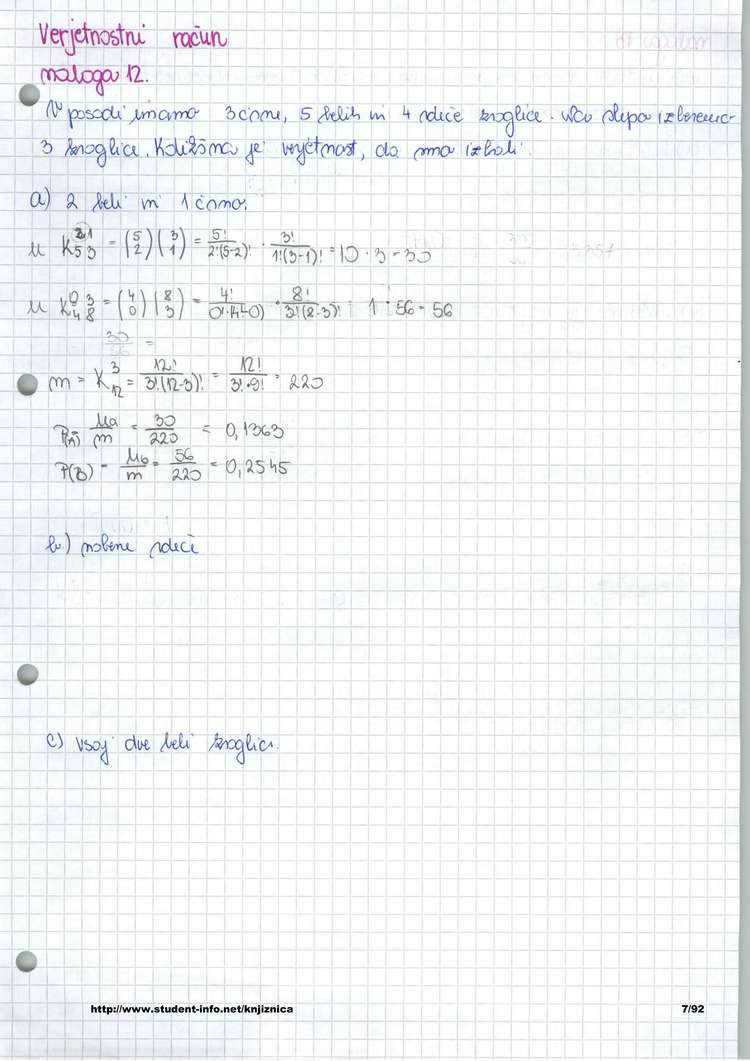 Verjetnostni račun
naloga 12.
V posodi imamo 3 črne, 5 belih in 4 rdeče kroglice. Na slepo izberemo
3 kroglice. Kolikšna je verjetnost, da smo izbrali:
a) 2 beli in 1 črno.
K 2 1 5 3 = (5 2) (3 1) = 5!/2!(5-2)! · 3!/1!(3-1)! = 10 · 3 = 30
K 0 3 4 8 = (4 0) (8 3) = 4!/0!(4-0) · 8!/3!(8-3)! 1 · 56 = 56
30/56 =
m = K 3 12 = 12!/3!(12-3)! = 12!/3!·9! = 220
P(A) = Ma/m = 30/220 = 0,1363
P(B) = Mb/m = 56/220 = 0,2545
b) nobene rdeče
c) vsaj dve beli kroglici.
http://www.student-info.net/knjiznica 7/92